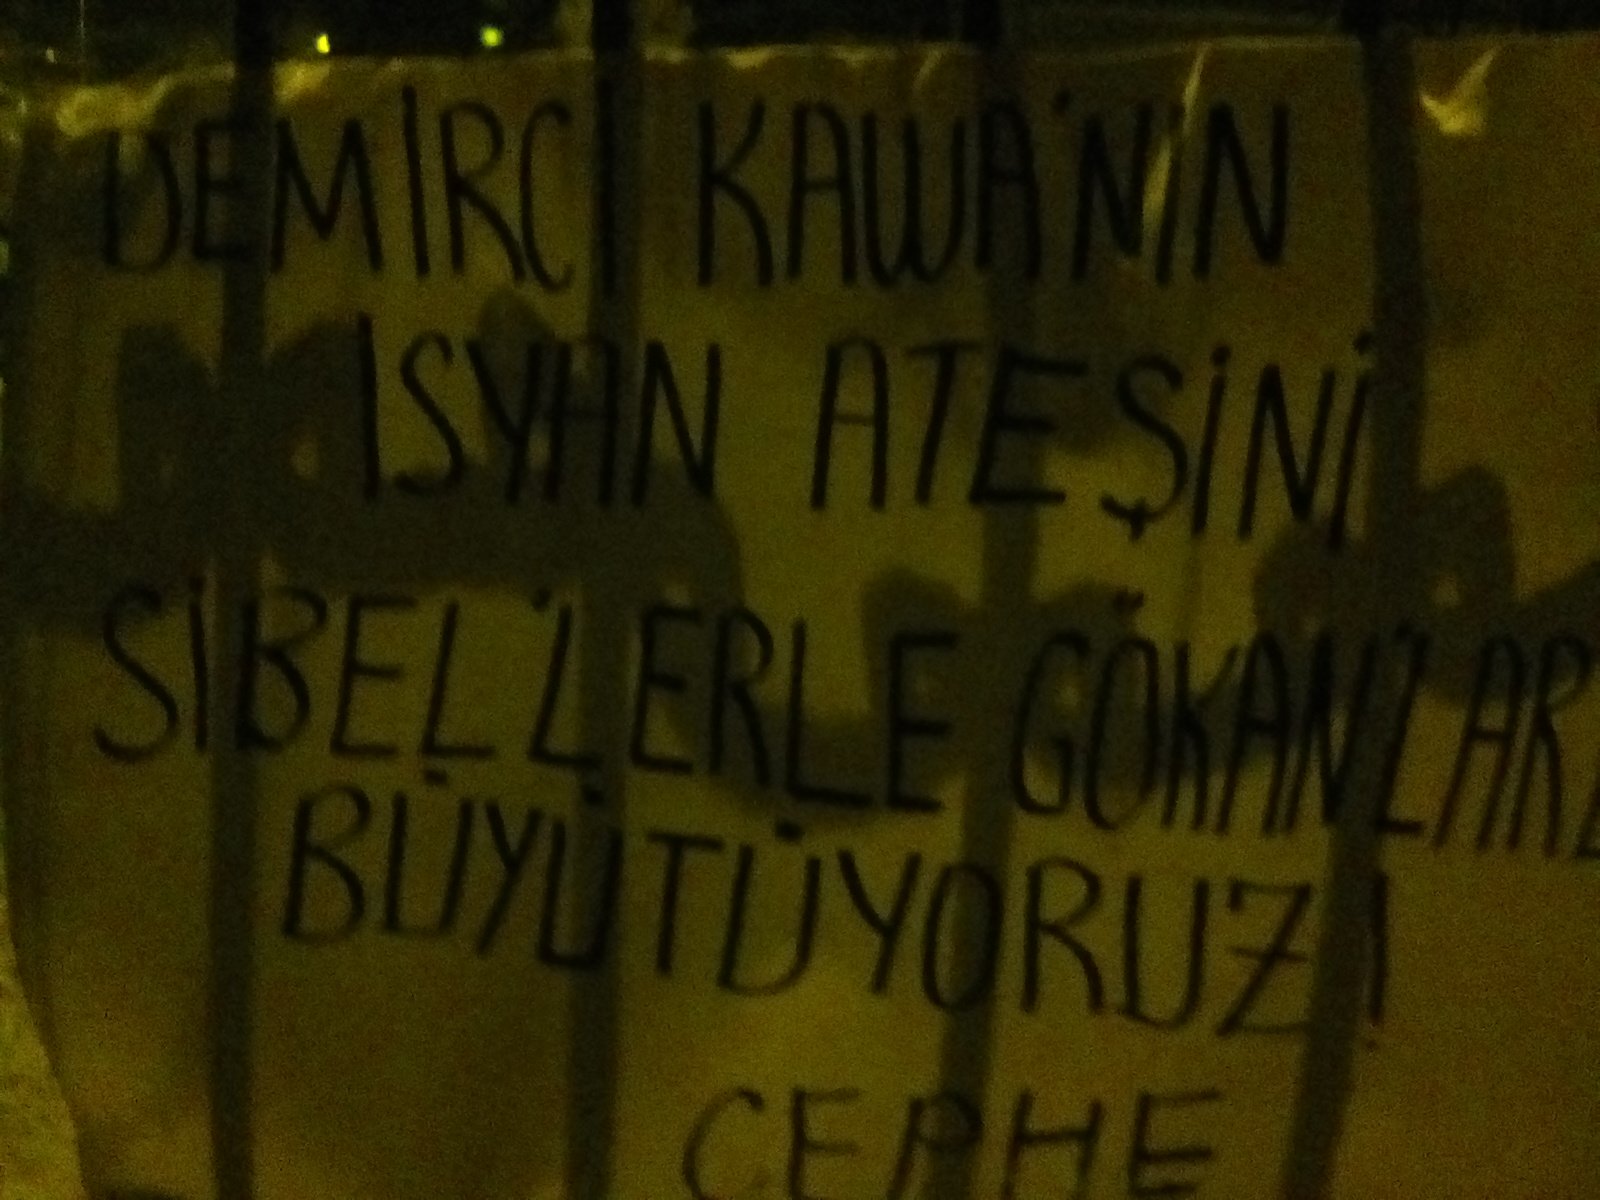 DEMİRCİ KAWA'NIN
ISYAN ATEŞİNİ
SİBEL'LERLE GÖKANLARL
BÜYÜTÜYORUZ!
CEPHE